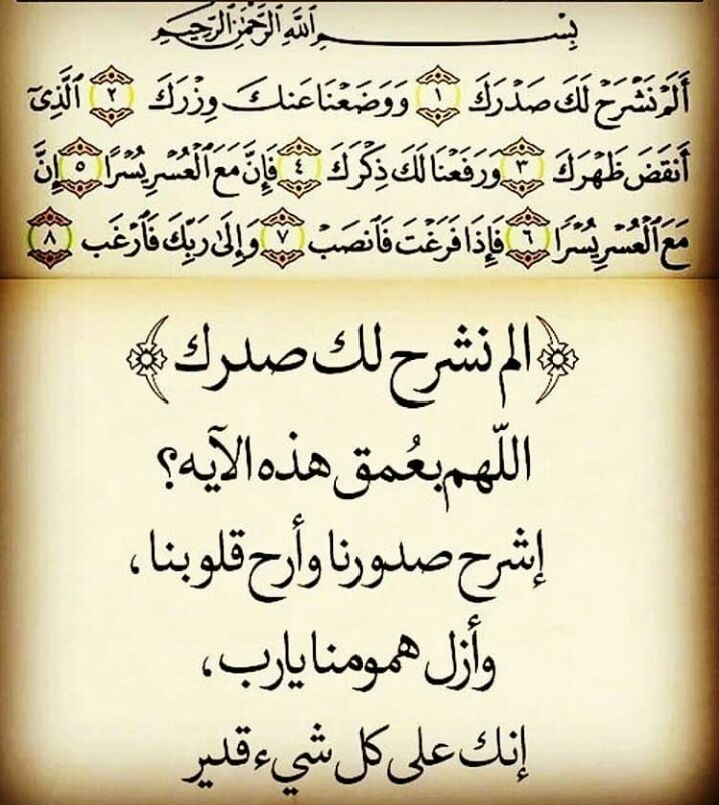 بِسْمِ ٱللَّهِ ٱلرَّحْمَٰنِ ٱلرَّحِيمِ
أَلَمْ نَشْرَحْ لَكَ صَدْرَكَ ١ وَوَضَعْنَا عَنكَ وِزْرَكَ ٢ ٱلَّذِىٓ
أَنقَضَ ظَهْرَكَ ٣ وَرَفَعْنَا لَكَ ذِكْرَكَ ٤ فَإِنَّ مَعَ ٱلْعُسْرِ يُسْرًا ٥ إِنَّ
مَعَ ٱلْعُسْرِ يُسْرًا ٦ فَإِذَا فَرَغْتَ فَٱنصَبْ ٧ وَإِلَىٰ رَبِّكَ فَٱرْغَب ٨
﴿الم نشرح لك صدرك﴾
اللّهم بعُمق هذه الآيه؟
إشرح صدورنا وأرح قلوبنا،
وأزل همومنا يارب،
إنك على كل شيء قدير